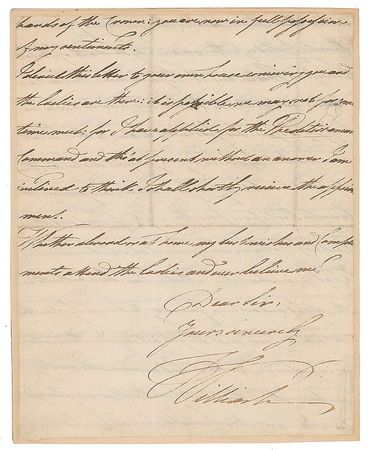 hands of the Crown: you are now in full possession
of my sentiments.
I direct this letter to your own house conceiving you and
the ladies are there: it is possible we may not for some
time meet: for I have applied for the Mediterranean
Command and tho at present without an answer I am
inclined to think I shall shortly receive the appoint
ment.
Whether abroad or at home my best wishes and Compli
ments attend the ladies and ever believe me
Dear Sir,
Yours sincerely
William